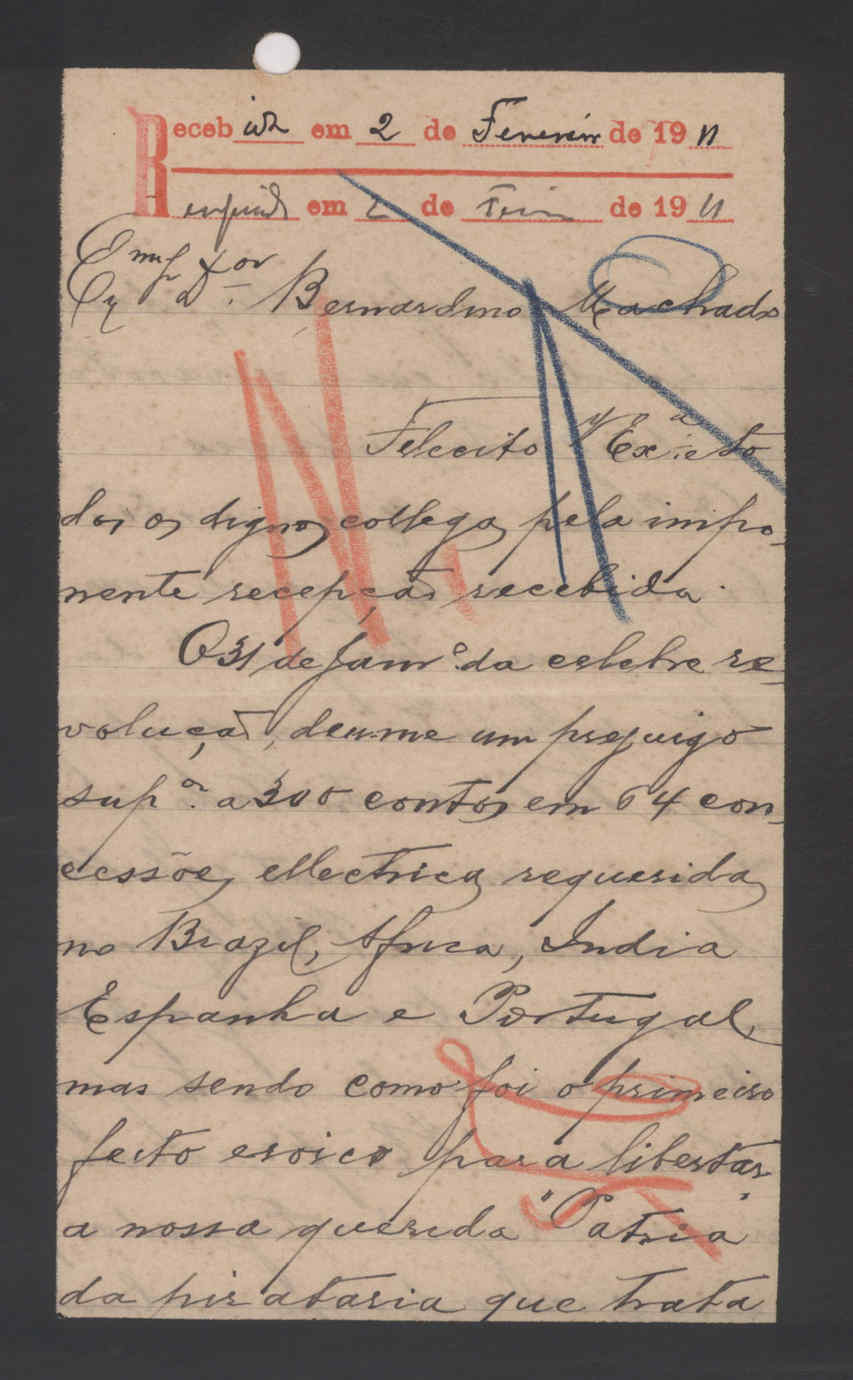 Recebida em 2 de Fevereiro de 1911
Respondida em 2 de Fevereiro de 1911
Exmo Snr Dor Bernardino Machado
Felecito VExa e to
dos os dignos collegas pela impo
nente recepção recebida.
O 31 de Janro da celebre re
volução, deu-me um prejuizo
supor a 300 contos em 64 con
cessões ellectricas requeridas
no Brazil, Africa, India
Espanha e Portugal,
mas sendo como foi o primeiro
feito eroico para libertar
a nossa querida "Patria"
da pirataria que trata